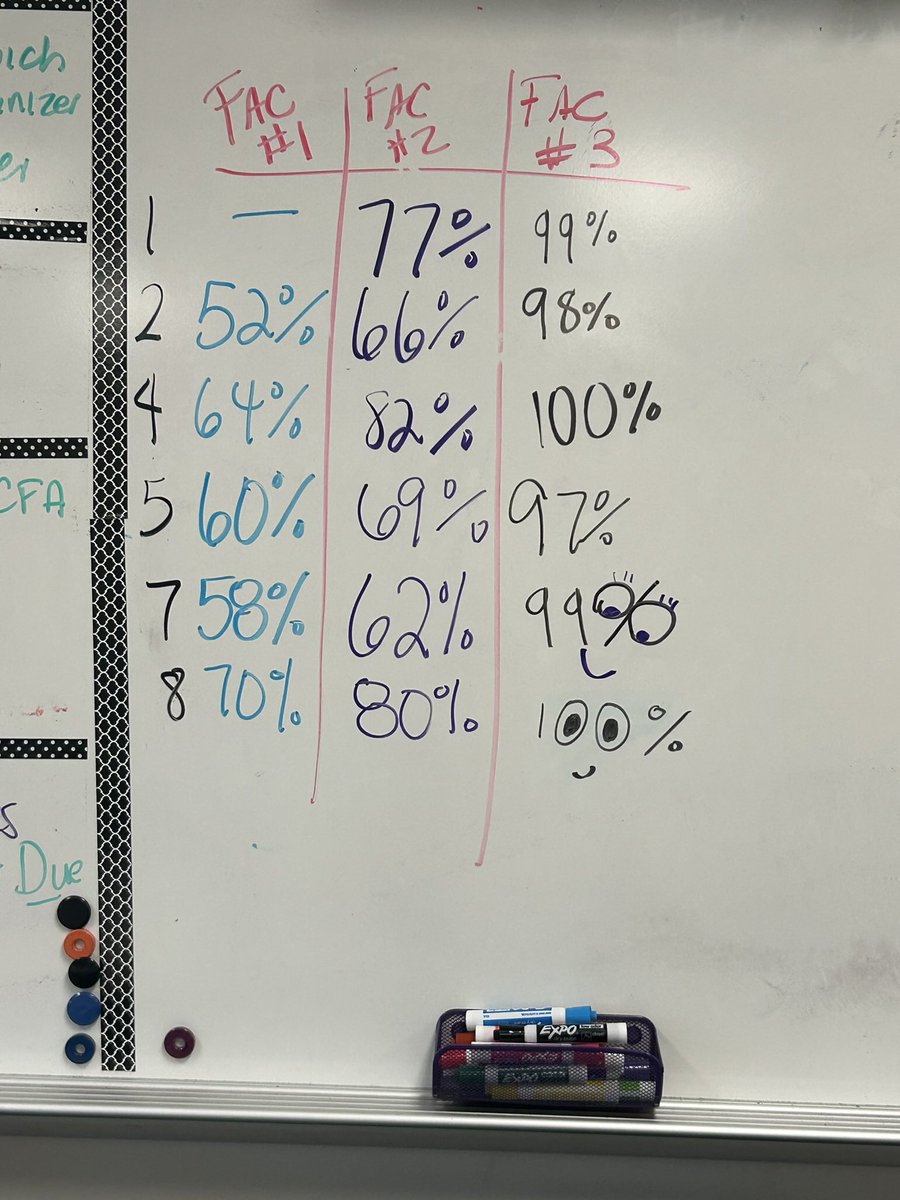 FAC #1 FAC #2 FAC #3
1 — 77% 99%
2 52% 66% 98%
4 64% 82% 100%
5 60% 69% 97%
7 58% 62% 99%
8 70% 80% 100%
CFA
Due
EXPO
EXPO